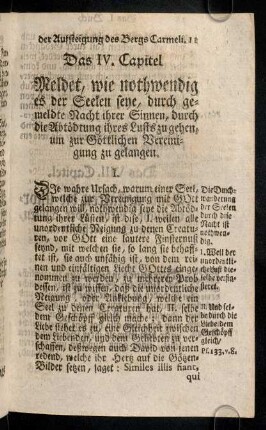 der Aufsteigung des Bergs Carmeli. 11
Das IV. Capitel
Meldet, wie nothwendig
es der Seelen seye, durch ge-
meldte Nacht ihrer Sinnen, durch
die Abtödtung ihres Lusts zu gehen,
um zur Göttlichen Vereini-
gung zu gelangen.
Die wahre Ursach, warum einer Seel,
welche zur Vereinigung mit GOtt
gelangen will, nothwendig seye die Abtöd-
tung ihrer Lüsten, ist dise, I. weilen alle
unordentliche Neigung zu denen Creatu-
ren, vor GOtt eine lautere Finsternuß
seynd, mit welchen sie, so lang sie behaff-
tet ist, sie auch unfähig ist, von dem rei-
nen und einfältigen Liecht GOttes einge-
nommen zu werden, zu mehreren
dessen, ist zu wissen, daß die unordentliche
Neigung oder Anklebung, welche ein
Seel zu denen Creaturen hat, II. selbe
dem Geschöpff gleich mache; dann der
Liebe stehet es zu, eine Gleichheit zwischen
dem Liebenden, und dem Geliebten zu ver-
schaffen, deßwegen auch David von jenen
redend, welche ihr Hertz auf die Götzen-
Bilder setzen, saget: Similes illis fiant,
qui
Die Durch-
wanderung
der Seelen
durch dise
Nacht ist
nothwen-
dig.
1. Weil der
unordentli-
che Lust die
Seele verfin-
stert.
2. Und sel-
be durch die
Liebe dem
Geschöpff
gleich,
Ps. 133. v. 8.